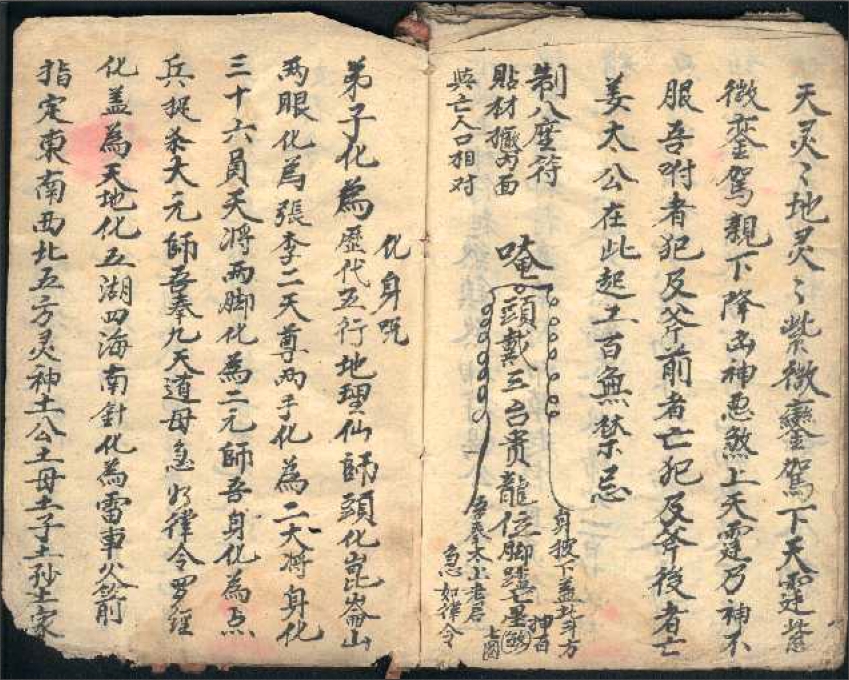 天灵〻地灵〻紫微銮駕下天霆紫
微銮駕親下降凶神恶煞上天霆乃神不
服吾咐者犯及斧前者亡犯及斧後者亡
姜太公在此起工百無禁忌
制八座符
貼材檻方面
與亡人口相对
唵
頭戴三台贵龍位脚踏七星
身披下盖北斗方
吾奉太上老君
急如律令
化身咒
弟子化爲歷代五行地理仙師頭化崑崙山
两眼化爲張李二天尊两手化為二大将身化
三十六員天将两脚化為二元師吾身化為
兵捉杀大元師吾奉九天道母急如律令罗經
化盖為天地化五湖四海南針化為雷車火
指定東南西北五方灵神土公土母土子土孙土家